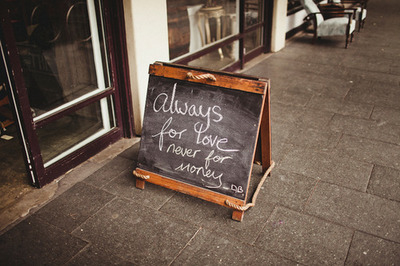 Always
for love
never for
money
_DB